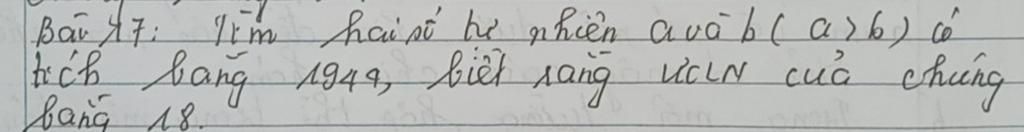 Bài 17: Tìm hai số tự nhiên a và b ( a > b ) có
tích bằng 1944, biết rằng ƯCLN của chúng
bằng 18.